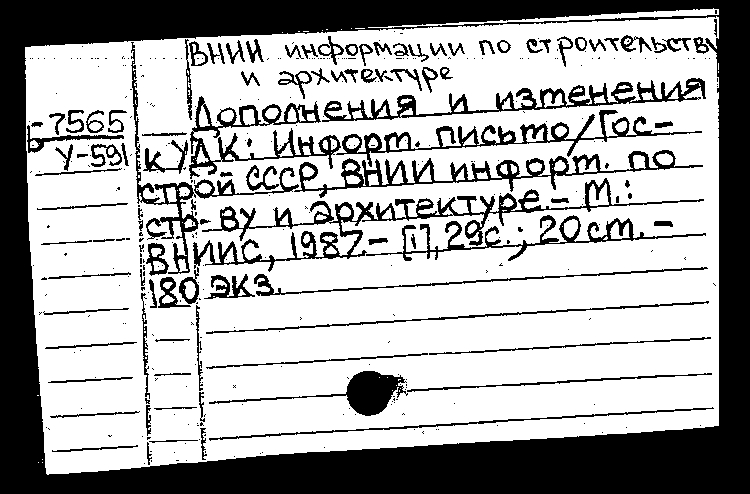 ВНИИ информации по строительству
и архитектуре
Б-7565
У-591
Дополнения и изменения
к УДК: Информ. письмо/Гос-
строй СССР, ВНИИ информ. по
стр-ву и архитектуре.- М.:
ВНИИС, 1987.- [1], 29с.; 20см.-
180 экз.